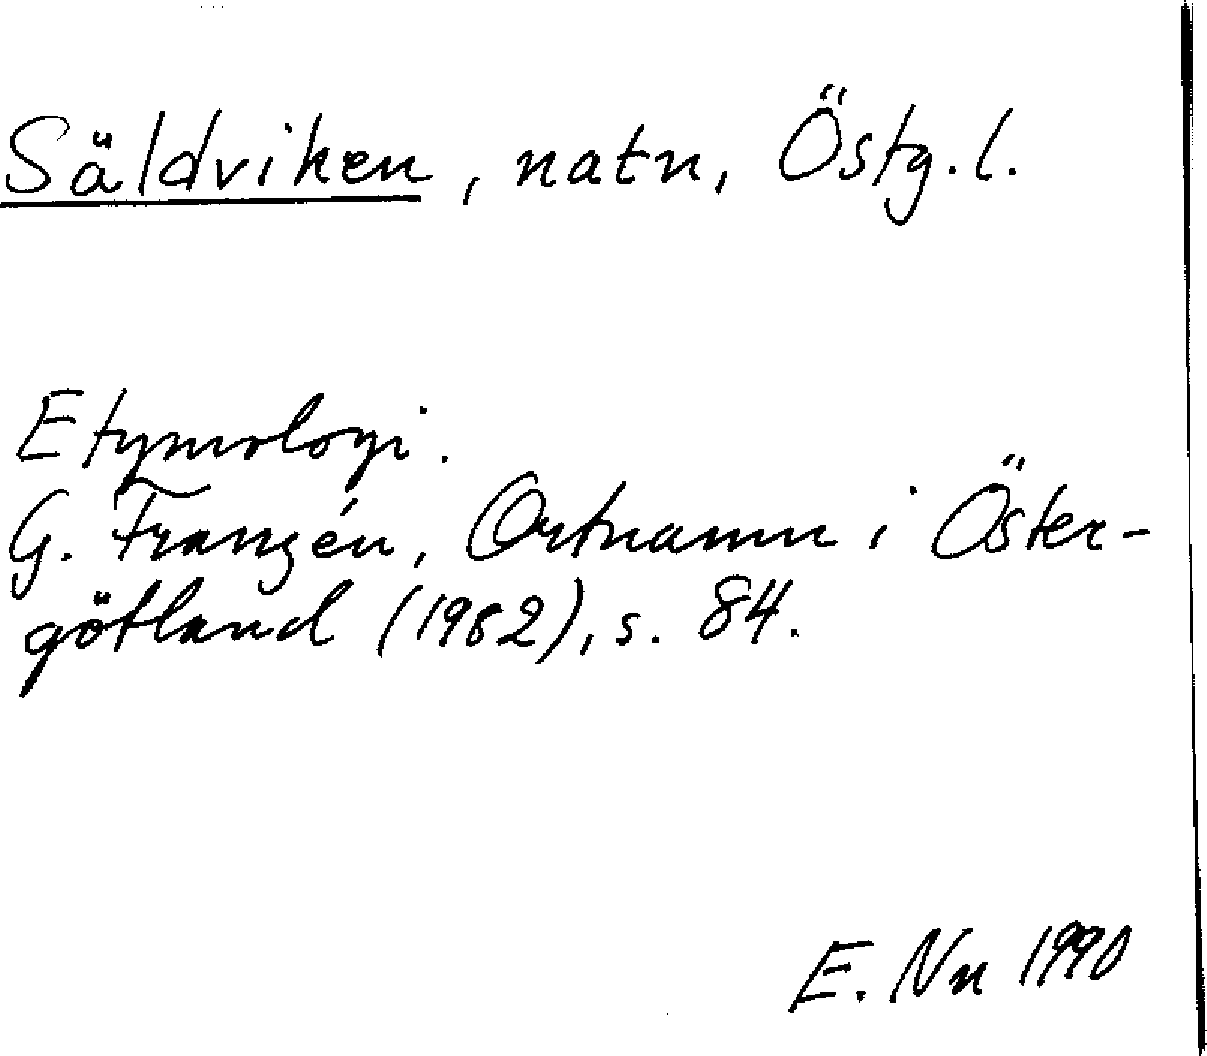 Säldviken, natn, Östg.l.
Etymologi.
G. Franzén, Ortnamn i Öster-
götland (1982), s. 84.
E. Nn 1990